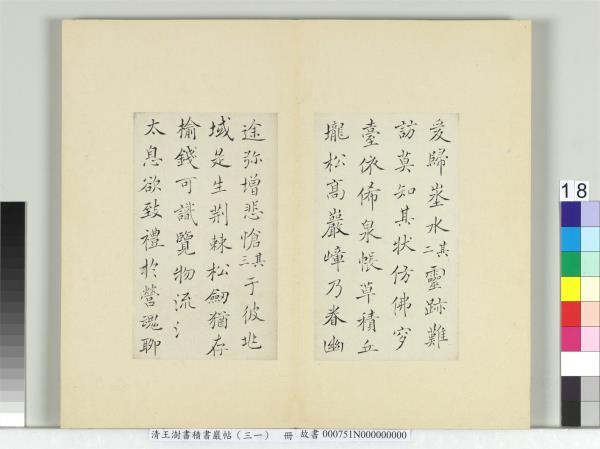 爰歸水其二靈跡難
訪莫知其狀仿佛穸
臺依俙泉帳草積丘
壠松高巖嶂乃眷幽
途弥增悲愴其三于彼兆
域是生荆棘松劒猶存
榆錢可識覽物流氵
太息欲致禮於營魂聊
18
清王澍書積書巖帖(三一) 冊 故書 000751N000000000